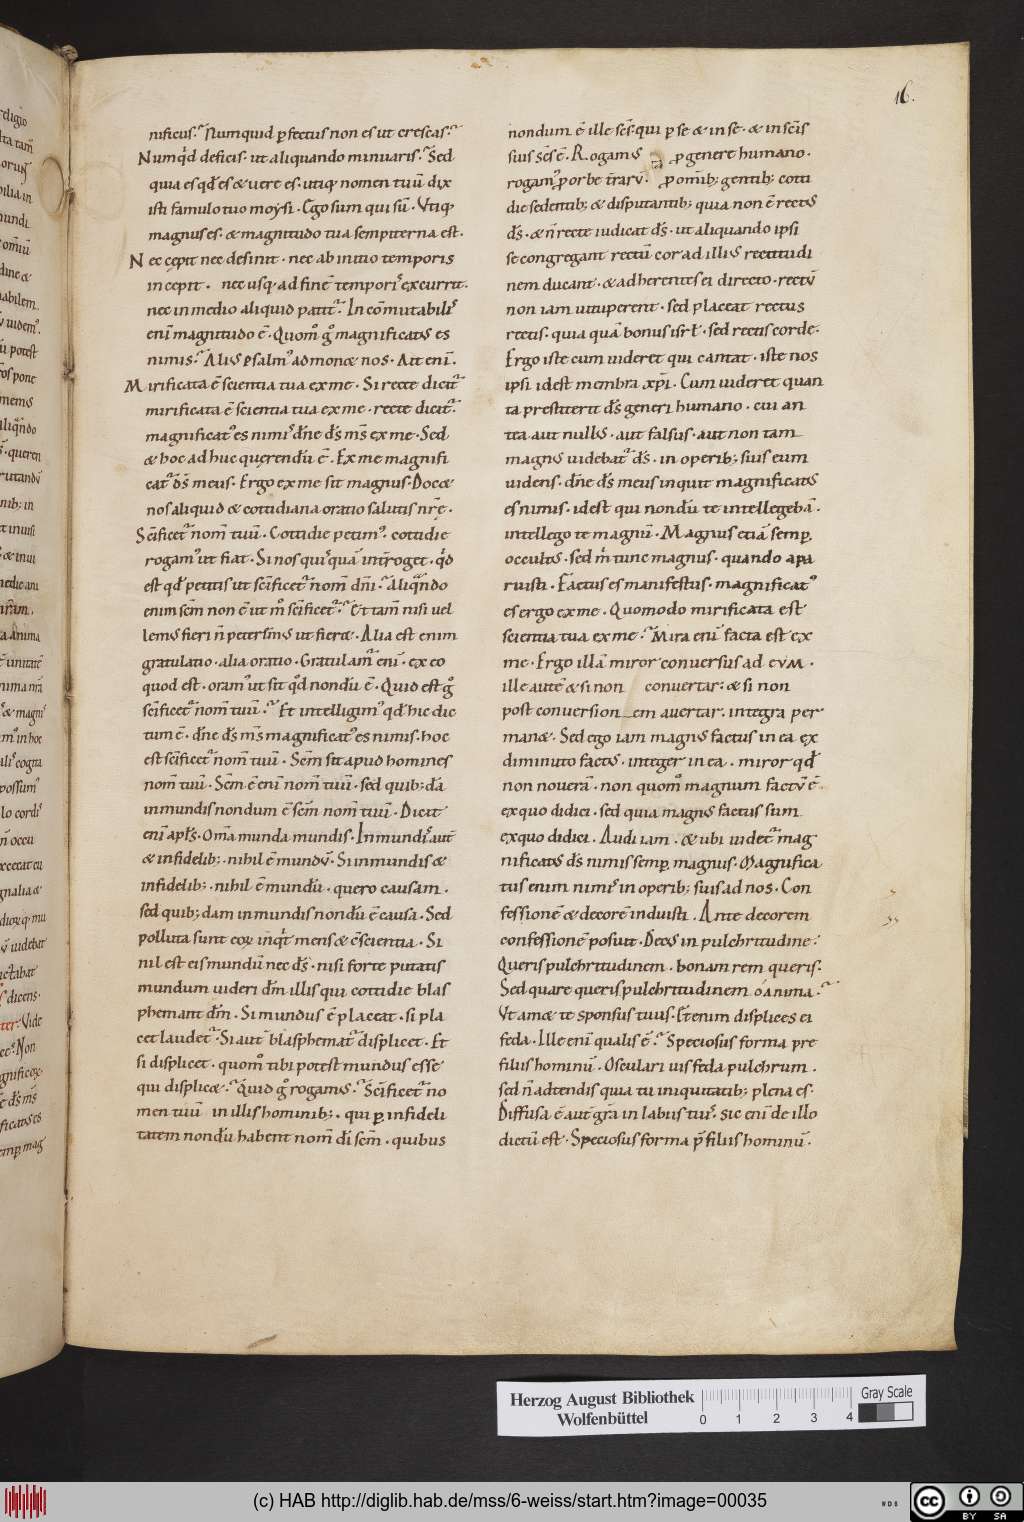 16.
nificus. Numquid ꝑfectus non es ut crescas.
Numq̇d deficis. ut aliquando minuaris. Sed
quia es qđ es & uere es. utiq; nomen tuū dix
isti famulo tuo moysi. Ego sum qui sū. Vtiq;
magnus es. & magnitudo tua sempiterna est.
Nec cępit nec desinit. nec ab initio temporis
incepit. nec usq; ad finē temporis excurrit.
nec in medio aliquid patit᷑. Incōmutabilis
enī magnitudo ē. Quom̊ g̊ magnificatus es
nimis. Alius psalmꝰ admonet nos. Ait enī.
Mirificata ē scientia tua ex me. Si recte dicit᷑
mirificata ē scientia tua ex me. recte dicit᷑.
magnificatꝰ es nimis dn̄e d̄s m̄s ex me. Sed
& hoc adhuc quęrendū ē. Ex me magnifi
cat᷑ d̄s meus. Ergo ex me sit magnus. Docet
nos aliquid & cotidiana oratio salutis nr̄ę.
Sc̄ificet᷑ nom̄ tuū. Cottidie petimꝰ. cottidie
rogamꝰ ut fiat. Si nos quisquā int̄roget. q̇d
est qđ petitis ut sc̄ificet᷑ nom̄ dn̄i. Aliqn̄do
enim sc̄m non ē ut m̊ sc̄ificet᷑. Et tam̄ nisi uel
lemus fieri n̄ peteremus ut fieret. Alia est enim
gratulatio. alia oratio. Gratulam᷑ enī. ex eo
quod est. oramꝰ ut sit q̇d nondū ē. Quid est g̊
sc̄ificet᷑ nom̄ tuū. Et intelligimꝰ qđ hic dic
tum ē. dn̄e d̄s m̄s magnificatꝰ es nimis. hoc
est sc̄ificet᷑ nom̄ tuū. Sc̄m sit apud homines
nom̄ tuū. Sc̄m ē enī nom̄ tuū. sed quib; dā
inmundis nondum ē sc̄m nom̄ tuū. Dicit
enī apłs. Om̄a munda mundis. Inmundis aut̄
& infidelib;. nihil ē mundū. Si inmundis &
infidelib;. nihil ē mundū. quero causam.
sed quib; dam inmundis nondū ē causa. Sed
polluta sunt eoꝝ inq̇t mens & c̄scientia. Si
nil est eis mundū nec d̄s. nisi forte putatis
mundum uideri dm̄ illis qui cottidie blas
phemant dm̄. Si mundus ē placeat. si pla
cet laudet᷑. Si aut̄ blasphemat᷑ displicet. Et
si displicet. quom̊ tibi potest mundus esse
qui displicet. Quid g̊ rogamus. Sc̄ificet᷑ no
men tuū in illis hominib;. qui ꝑ infideli
tatem nondū habent nom̄ dī sc̄m. quibus
nondum ē ille sc̄s. qui ꝑ se & in se. & in sc̄is
suis sc̄s ē. Rogamus ꝓ genere humano.
rogamꝰ ꝓ orbe t̄rarū. ꝓ om̄ib; gentib; cotti
die sedentib; & disputantib; quia non ē rectus
d̄s. & n̄ recte iudicat d̄s. ut aliquando ipsi
se congregant rectū cor ad illius rectitudi
nem ducant. & adherentes ei directo. rectū
non iam uituperent. sed placeat rectus
rectis. quia quā bonus isrł. d̄s rectis corde.
Ergo iste cum uideret qui cantat. iste nos
ipsi idest membra xp̄i. Cum uideret quan
ta prestiterit d̄s generi humano. cui an
tea aut nullus. aut falsus. aut non tam
magnus uidebat᷑ d̄s. in operib; suis eum
uidens. dn̄e d̄s meus inquit magnificatus
es nimis. idest qui nondū te intellegebā.
intellego te magnū. Magnus etiā semꝑ
occultus. sed m̄ tunc magnus. quando apa
ruisti. Factus es manifestus. magnificatꝰ
es ergo ex me. Quomodo mirificata est
scientia tua ex me. Mira enī facta est ex
me. Ergo illā miror conuersus ad eum.
ille autē & si non conuertar: & si non
post conuersionem auertar. integra per
manet. Sed ego iam magnus factus in ea ex
diminuto factus. integer in ea. miror qđ
non nouerā. non quom̊ magnum factū ē
ex quo didici. sed quia magnus factus sum
ex quo didici. Audi iam. & ubi uidet᷑ mag
nificatus d̄s nimis semꝑ magnus. Magnifica
tus enim nimis in operib; suis ad nos. Con
fessionē & decorē induisti. Ante decorem
confessionē posuit. Decus in pulchritudine.
Queris pulchritudinem. bonam rem queris.
Sed quare queris pulchritudinem o anima.
Vt amet te sponsus tuus. Etenim displices ei
feda. Ille enī qualis ē. Speciosus forma pre
filiis hominū. Osculari uis feda pulchrum.
sed n̄ adtendis quia tu iniquitatib; plena es.
Diffusa ē aut̄ gr̄a in labiis tuis. sic enī de illo
dictū est. Speciosus forma p̄ filiis hominū.
Herzog August Bibliothek
Wolfenbüttel
0 1 2 3 4
Gray Scale
(c) HAB http://diglib.hab.de/mss/6-weiss/start.htm?image=00035
WDB
cc BY SA